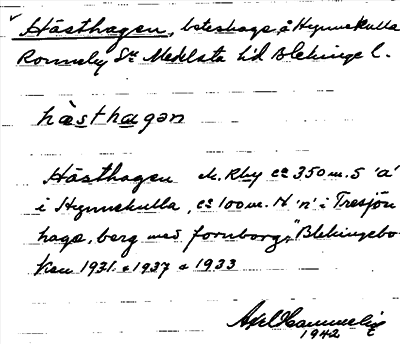 Hästhagen, beteshage å Hynnekulla
Ronneby Sn Medelsta hd Blekinge l.
hàsthagən
Hästhagen M. Rby ca 350 m. S "a"
i Hynnekulla, ca 100 m. N "n" i Tresjön
hage, berg med fornborg, "Blekingebo-
ken 1931 o 1937 o 1933
Axel Hammelig
1942